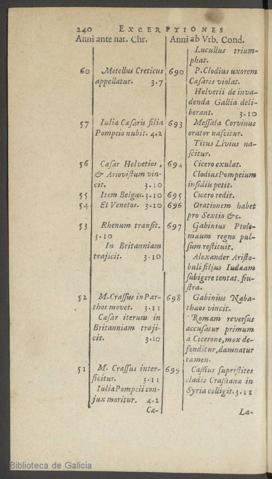 240 EXCERPTIONES
Anni ante nat. Chr. Anni ab Vrb. Cond.
Lucullus trium-
phat.
60 Metellus Creticus 690 P. Clodius uxorem
appellatur. 3.7 Cæsaris violat.
Helvetii de inva-
denda Gallia deli-
berant. 3.10
57 Iulia Cæsaris filia 693 Messala Corvinus
Pompeio nubit. 4.2 orator nascitur.
Titus Livius na-
scitur.
56 Cæsar Helvetios, 694 Cicero exulat.
& Ariovistum vin- Clodius Pompeium
cit. 3.10 insidiis petit.
55 Item Belgas. 3.10 695 Cicero redit.
54 Et Venetos. 3.10 696 Orationem habet
pro Sextio &c.
53 Rhenum transit. 697 Gabinius Ptole-
3.10 mæum regno pul-
In Britanniam sum restituit.
trajicit. 3.10 Alexander Aristo-
buli filius Iudæam
subigere tentat, fru-
stra.
52 M. Crassus in Par- 698 Gabinius Naba-
thos movet. 3.11 thæos vincit.
Cæsar iterum in Romam reversus
Britanniam traji- accusatur primum
cit. 3.10 a Cicerone, mox de-
fenditur, damnatur
tamen.
51 M. Crassus inter- 699 Cassius superstites
ficitur. 3.11 cladis Crassianæ in
Iulia Pompeii con- Syria colligit. 3.11
jux moritur. 4.2
Cæ- La-
Biblioteca de Galicia